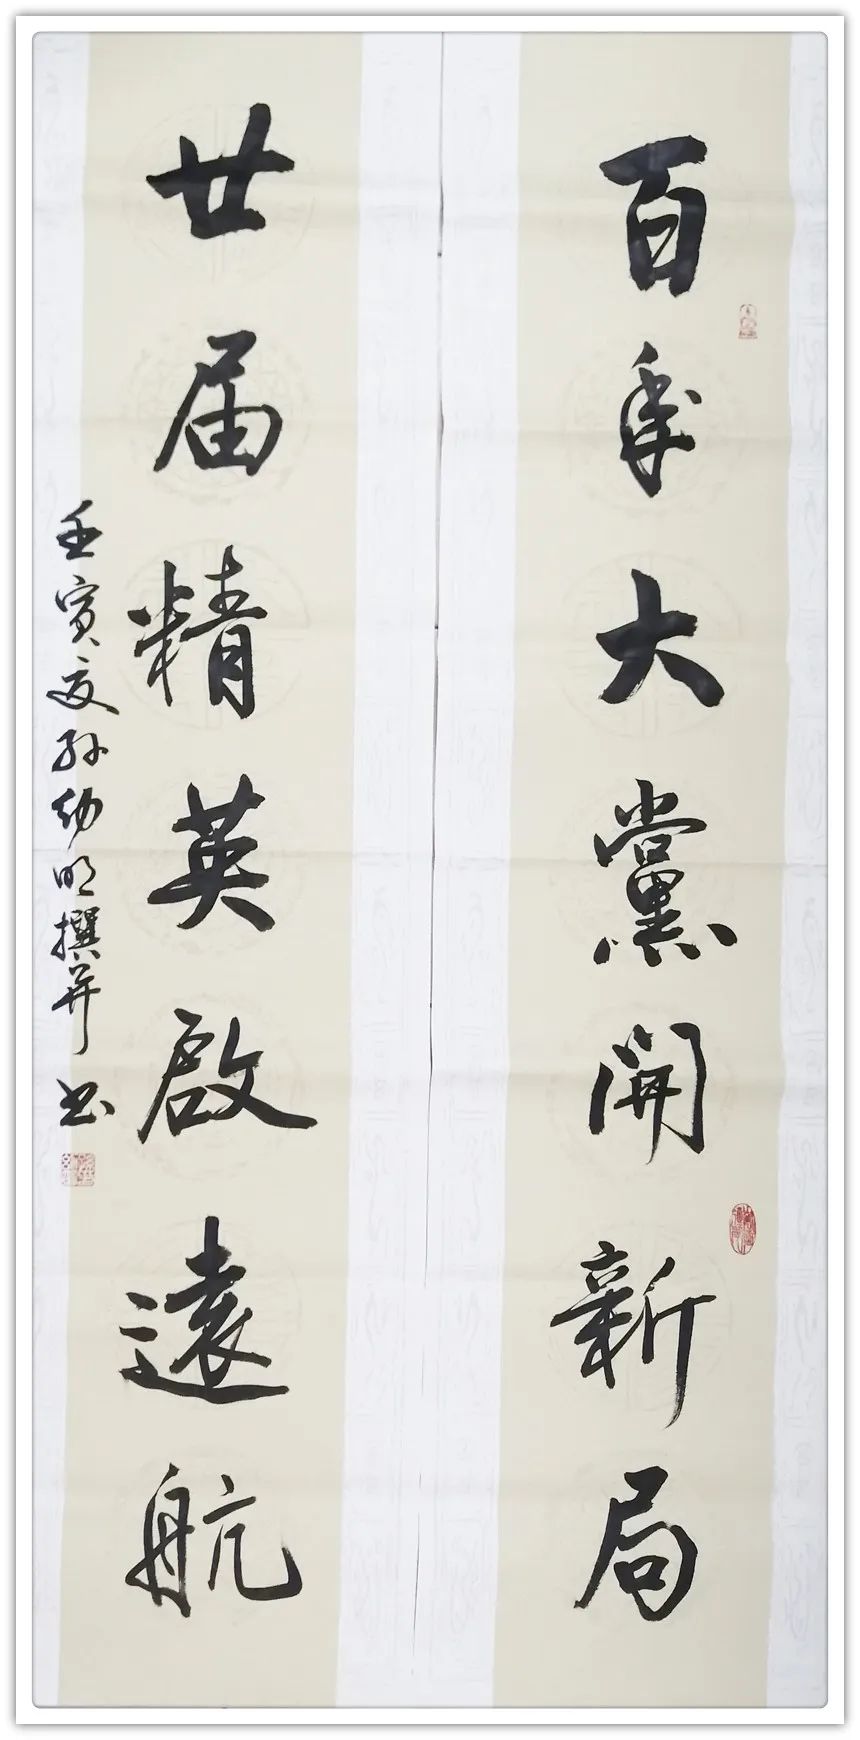 百年大黨開新局
廿届精英啟遠航
壬寅夏孙幼明撰并书